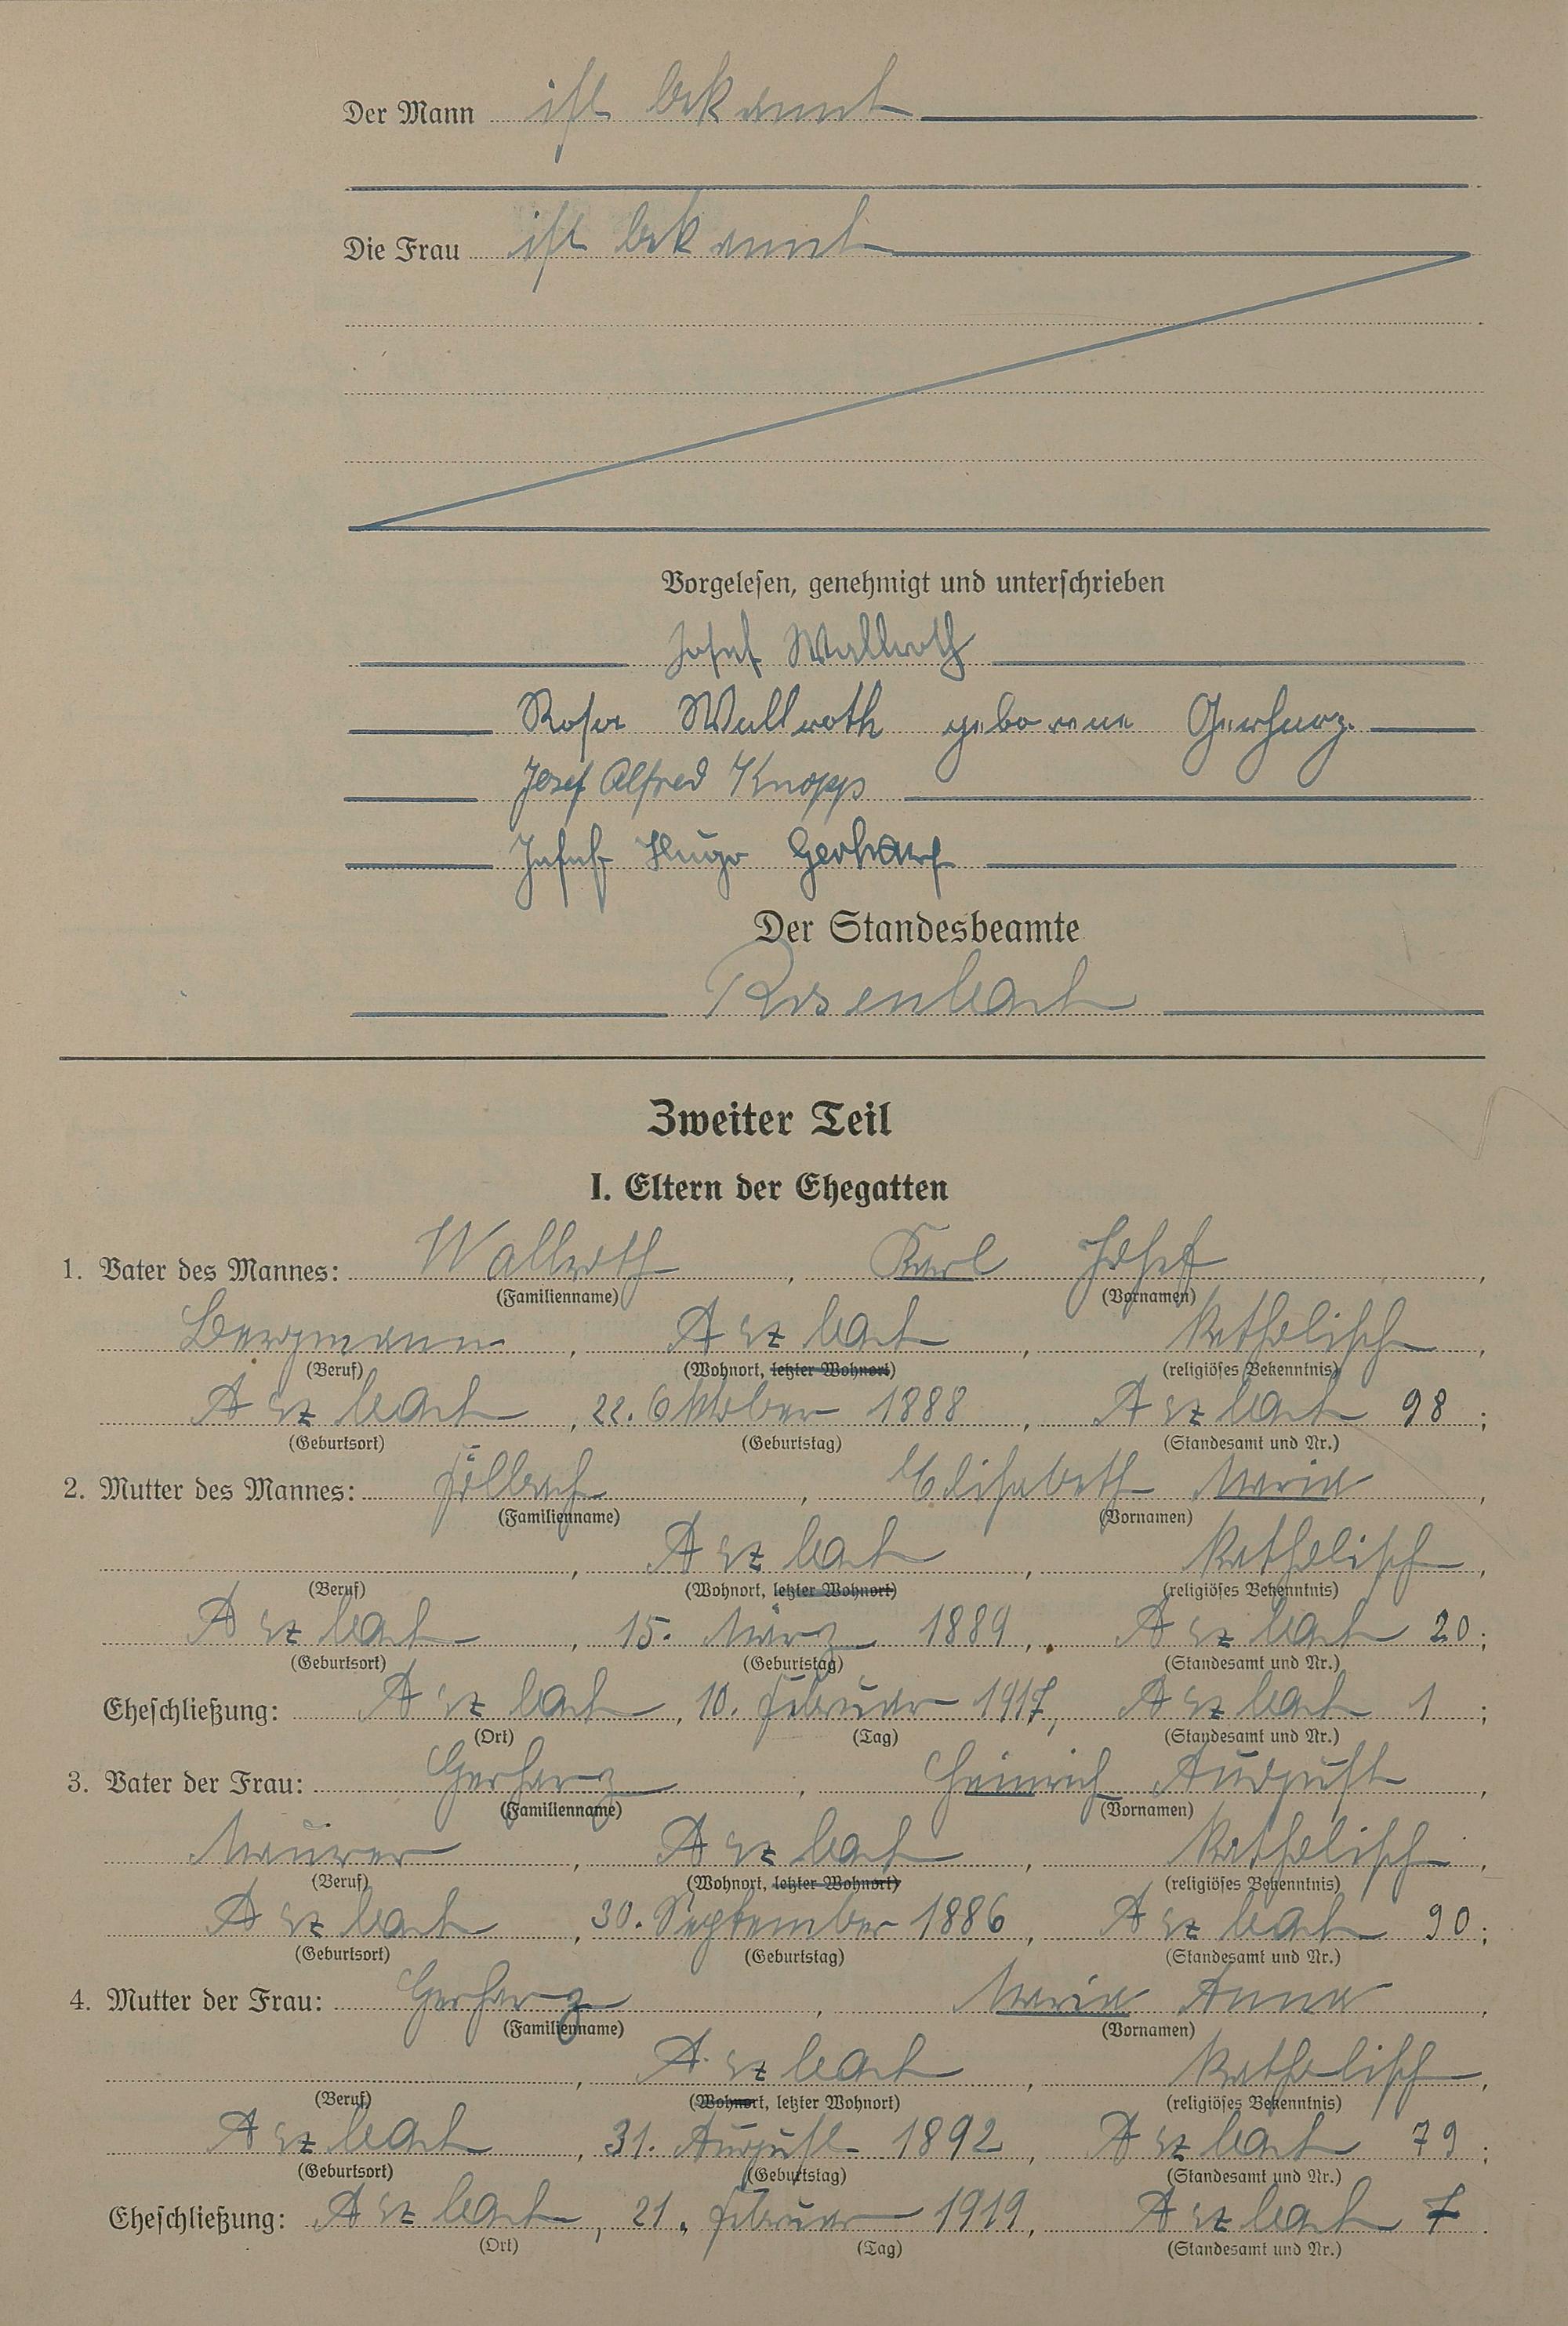 Der Mann ist bekannt
Die Frau ist bekannt
Vorgelesen, genehmigt und unterschrieben
Josef Wallroth
Rosa Wallroth geborene Gerharz.
Josef Alfred Knopp
Josef Hugo Gerharz
Der Standesbeamte
Rosenbach
Zweiter Teil
I. Eltern der Ehegatten
1. Vater des Mannes: Wallroth, Karl Josef,
(Familienname) (Vornamen)
Bergmann, Arzbach, katholisch,
(Beruf) (Wohnort, letzter Wohnort) (religiöses Bekenntnis)
Arzbach, 22. Oktober 1888, Arzbach 98;
(Geburtsort) (Geburtstag) (Standesamt und Nr.)
2. Mutter des Mannes: Elisabeth Maria,
(Familienname) (Vornamen)
Arzbach, katholisch,
(Beruf) (Wohnort, letzter Wohnort) (religiöses Bekenntnis)
Arzbach, 15. März 1889, Arzbach 20;
(Geburtsort) (Geburtstag) (Standesamt und Nr.)
Eheschließung: Arzbach, 10. Februar 1917, Arzbach 1;
(Ort) (Tag) (Standesamt und Nr.)
3. Vater der Frau: Gerharz, Heinrich August,
(Familienname) (Vornamen)
Maurer, Arzbach, katholisch,
(Beruf) (Wohnort, letzter Wohnort) (religiöses Bekenntnis)
Arzbach, 30. September 1886, Arzbach 90;
(Geburtsort) (Geburtstag) (Standesamt und Nr.)
4. Mutter der Frau: Gerharz, Maria Anna,
(Familienname) (Vornamen)
Arzbach, katholisch,
(Beruf) (Wohnort, letzter Wohnort) (religiöses Bekenntnis)
Arzbach, 31. August 1892, Arzbach 79;
(Geburtsort) (Geburtstag) (Standesamt und Nr.)
Eheschließung: Arzbach, 21. Februar 1919, Arzbach 7.
(Ort) (Tag) (Standesamt und Nr.)